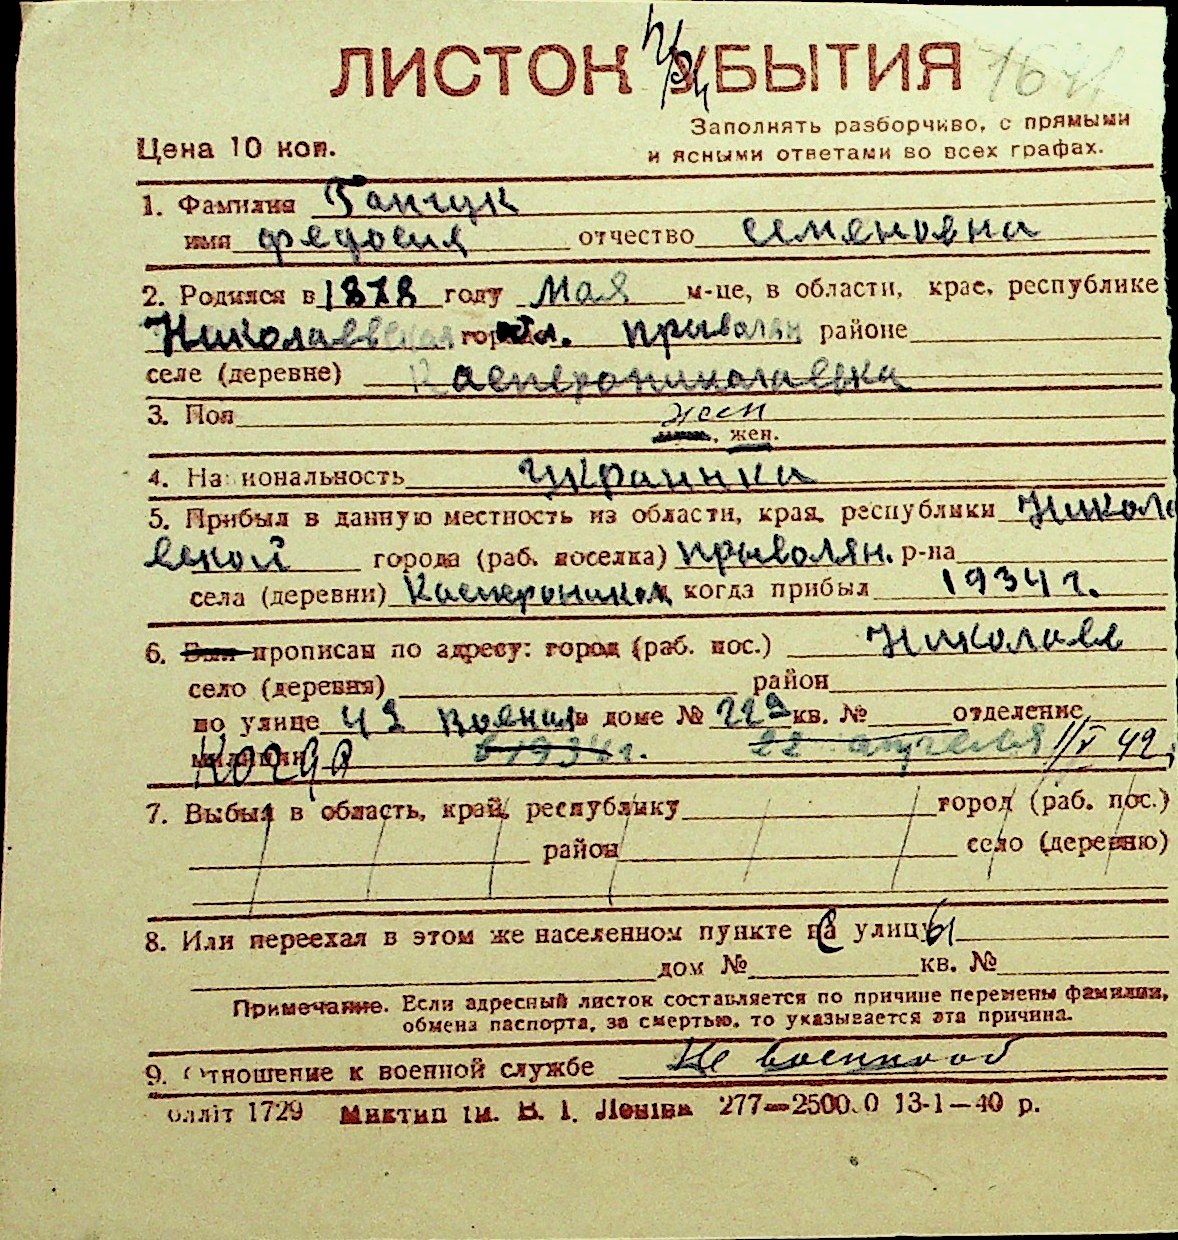 ЛИСТОК УБЫТИЯ
Цена 10 коп.
Заполнять разборчиво, с прямыми
и ясными ответами во всех графах.
1. Фамилия Ганчук
имя Федосия отчество Семеновна
2. Родился в 1878 году Мая м-це, в области, крае, республике
Николаевская города обл. Прыволян районе
селе (деревне) Касперониколаевка
3. Пол жен
муж., жен.
4. Национальность Украинка
5. Прибыл в данную местность из области, края, республики Никола
евской города (раб. поселка) Прыволян. р-на
села (деревни) Каспероникол когда прибыл 1934 г.
6. Был прописан по адресу: город (раб. пос.) Николаев
село (деревня) район
по улице 4я Военая в доме № 229 кв. № отделение
милиции Когда в 1934 г. 22 апреля 1/V 42
7. Выбыл в область, край, республику город (раб. пос.)
район село (деревню)
8. Или переехал в этом же населенном пункте с улицы
дом № кв. №
Примечание. Если адресный листок составляется по причине перемены фамилии,
обмена паспорта, за смертью, то указывается эта причина.
9. Отношение к военной службе Не военнооб
олліт 1729 Миктип ім. В. І. Леніна 277—2500.0 13-1—40 р.